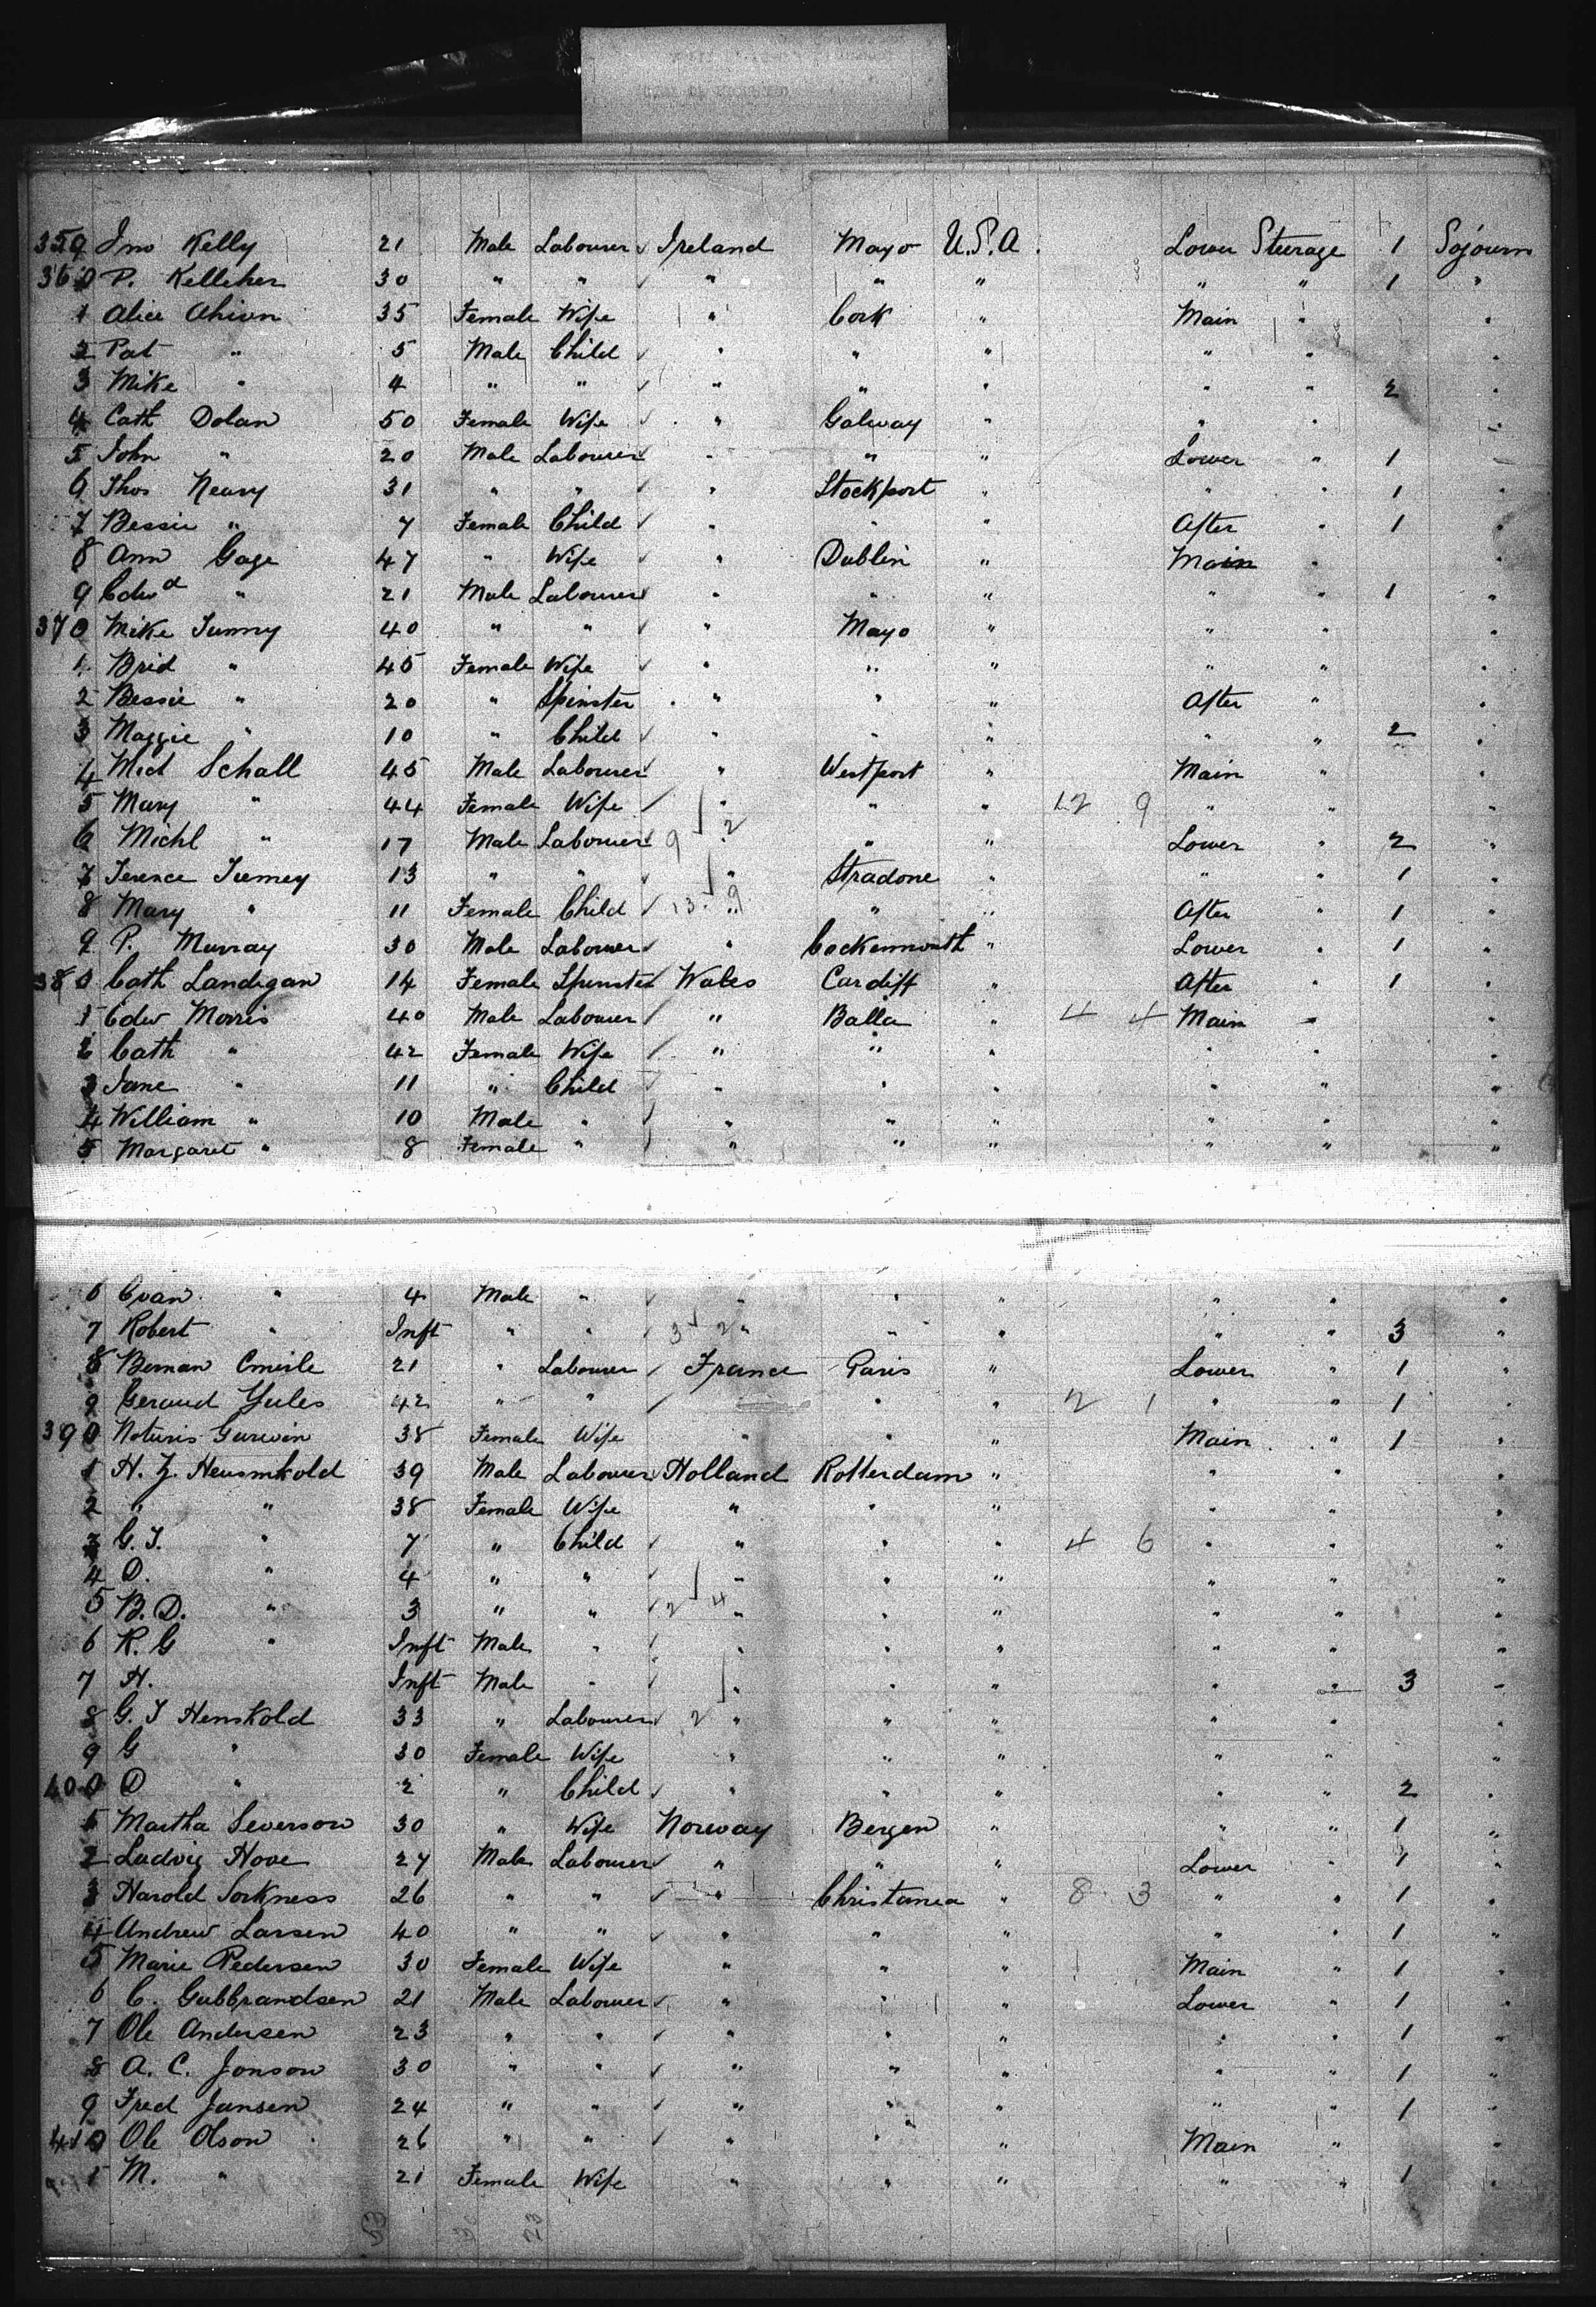 359 Jno Kelly 21 Male Labourer Ireland Mayo U.S.A. Lower Steerage 1 Sojourn
360 P. Kelleher 30 " " " " " " " 1 "
1 Alice Ahivn 35 Female Wife " Cork " Main " "
2 Pat " 5 Male Child " " " " " "
3 Mike " 4 " " " " " " " 2 "
4 Cath Dolan 50 Female Wife " Galway " " " "
5 John " 20 Male Labourer " " " Lower " 1 "
6 Thos Neary 31 " " " Stockport " " " 1 "
7 Bessie " 7 Female Child " " " After " 1 "
8 Ann Gage 47 " Wife " Dublin " Main " "
9 Edwd " 21 Male Labourer " " " " " 1 "
370 Mike Tunny 40 " " " Mayo " " " "
1 Brid " 45 Female Wife " " " " " "
2 Bessie " 20 " Spinster " " " After " "
3 Maggie " 10 " Child " " " " " 2 "
4 Mich Schall 45 Male Labourer " Westport " Main " "
5 Mary " 44 Female Wife " " " 12 9 " " "
6 Michl " 17 Male Labourer 9 2 " " " Lower " 2 "
7 Terence Tierney 13 " " " Stradone " " " 1 "
8 Mary " 11 Female Child 13 9 " " " After " 1 "
9 P. Murray 30 Male Labourer " Cockermouth " Lower " 1 "
380 Cath Landigan 14 Female Spinster Wales Cardiff " After " 1 "
1 Edw Morris 40 Male Labourer " Balla " 4 4 Main " "
2 Cath " 42 Female Wife " " " " " "
3 Jane " 11 " Child " " " " " "
4 William " 10 Male " " " " " " "
5 Margaret " 8 Female " " " " " " "
6 Evan " 4 Male " " " " " " "
7 Robert " Inft " " 3 2 " " " " " 3 "
8 Bernan Emeile 21 " Labourer France Paris " Lower " 1 "
9 Geraud Jules 42 " " " " " 2 1 " " 1 "
390 Noturis Gurwin 38 Female Wife " " " Main " 1 "
1 H. Z. Heusmkold 39 Male Labourer Holland Rotterdam " " " "
2 " " 38 Female Wife " " " " " "
3 G. J. " 7 " Child " " " 4 6 " " "
4 D. " 4 " " " " " " " "
5 B. D. " 3 " " 2 4 " " " " " "
6 K. G " Inft Male " " " " " " "
7 H. " Inft Male " " " " " " 3 "
8 G. J Henskold 33 " Labourer 2 " " " " " "
9 G " 30 Female Wife " " " " " "
400 D " 2 " Child " " " " " 2 "
1 Martha Severson 30 " Wife Norway Bergen " " " 1 "
2 Ludvig Hove 27 Male Labourer " " " Lower " 1 "
3 Harold Sorkness 26 " " " Christanea " 8 3 " " 1 "
4 Andrew Larsen 40 " " " " " " " 1 "
5 Marie Pedersen 30 Female Wife " " " Main " 1 "
6 C. Gubbrandsen 21 Male Labourer " " " Lower " 1 "
7 Ole Andersen 23 " " " " " " " 1 "
8 A. C. Jonson 30 " " " " " " " 1 "
9 Fred Jansen 24 " " " " " " " 1 "
410 Ole Olson 26 " " " " " Main " "
1 M. " 21 Female Wife " " " " " 1 "
53 30 23